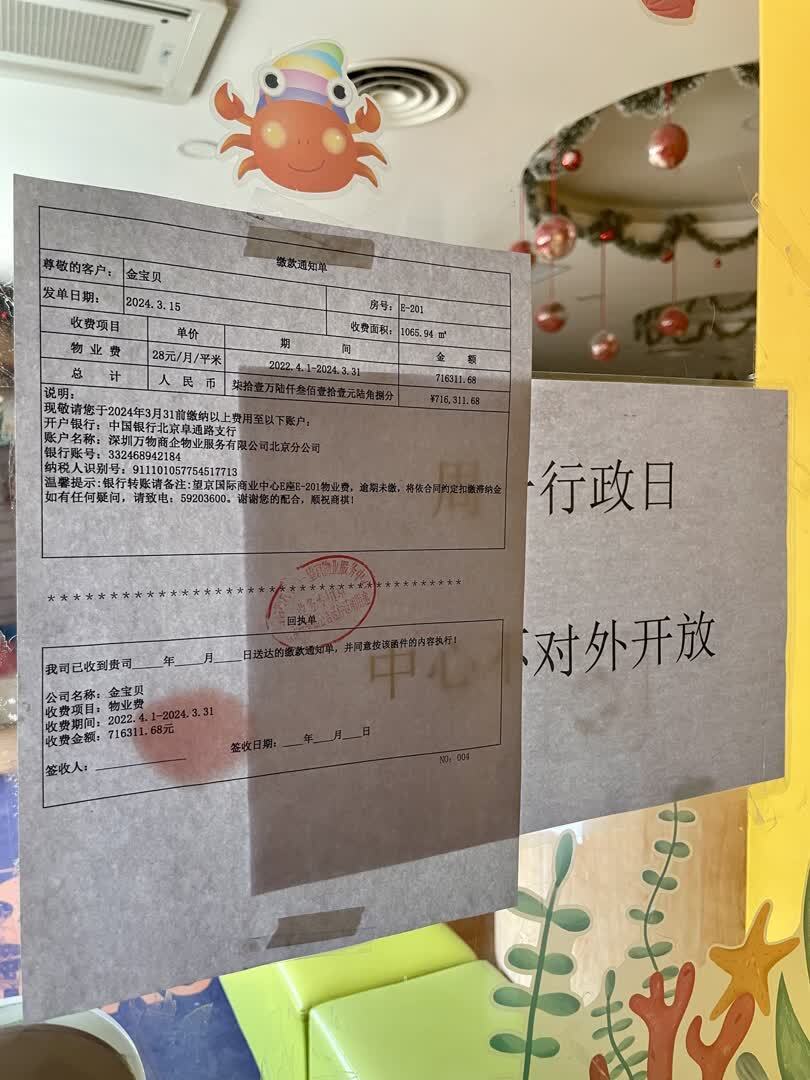 缴款通知单
尊敬的客户： 金宝贝
发单日期： 2024.3.15 房号： E-201
收费项目 单价 期 间 收费面积： 1065.94 ㎡
物 业 费 28元/月/平米 2022.4.1-2024.3.31 金 额
716311.68
总 计 人 民 币 柒拾壹万陆仟叁佰壹拾壹元陆角捌分 ¥716,311.68
说明：
现敬请您于2024年3月31前缴纳以上费用至以下账户：
开户银行：中国银行北京阜通路支行
账户名称：深圳万物商企物业服务有限公司北京分公司
银行账号：332468942184
纳税人识别号：911101057754517713
温馨提示:银行转账请备注:望京国际商业中心E座E-201物业费，逾期未缴，将依合同约定扣缴滞纳金
如有任何疑问，请致电：59203600。谢谢您的配合，顺祝商祺！
****************************************
回执单
我司已收到贵司____年____月____日送达的缴款通知单，并同意按该函件的内容执行！
公司名称：金宝贝
收费项目：物业费
收费期间：2022.4.1-2024.3.31
收费金额：716311.68元
签收人：______________ 签收日期：___年___月__日
NO：004
周一行政日
中心不对外开放